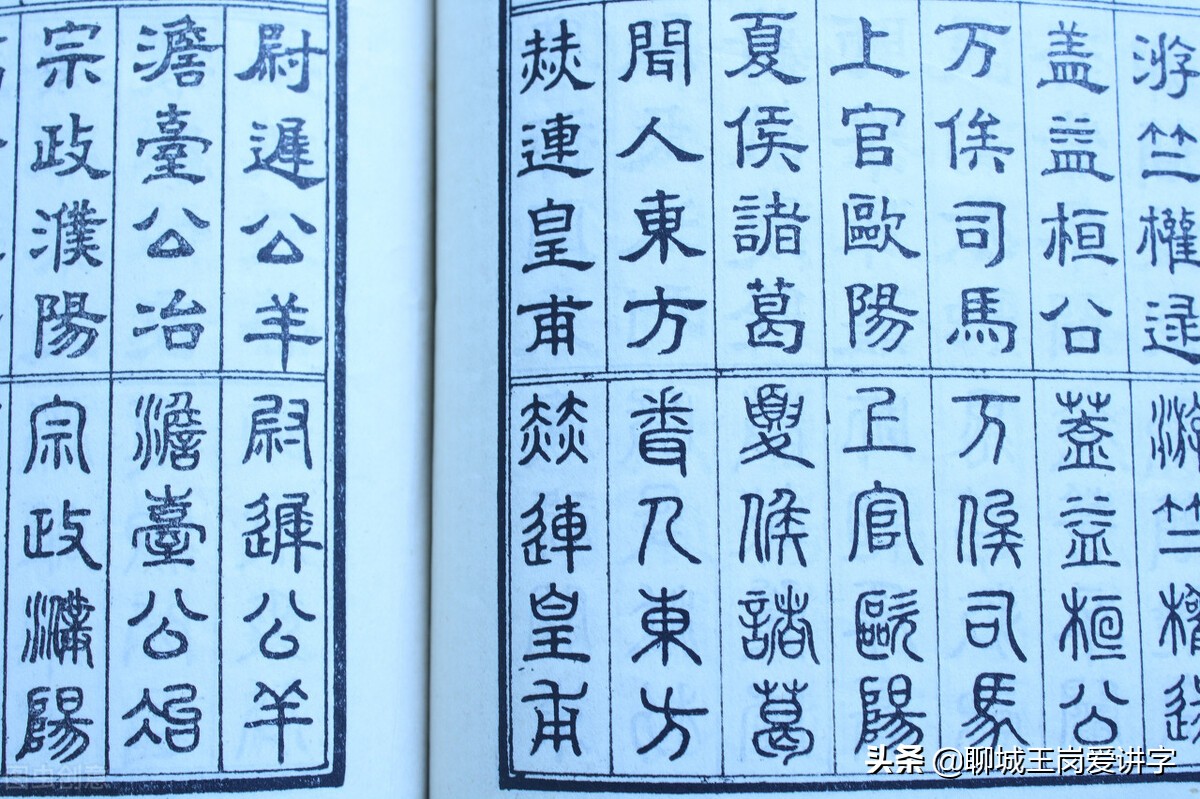 游竺權逯
盖益桓公
万俟司馬
上官歐陽
夏侯諸葛
聞人東方
赫連皇甫
尉遲公羊
澹臺公冶
宗政濮陽
游竺權逯
蓋益桓公
万俟司馬
上官歐陽
夏侯諸葛
聞人東方
赫連皇甫
尉遲公羊
澹臺公冶
宗政濮陽
头条 @聊城王岗爱讲字
图虫创意